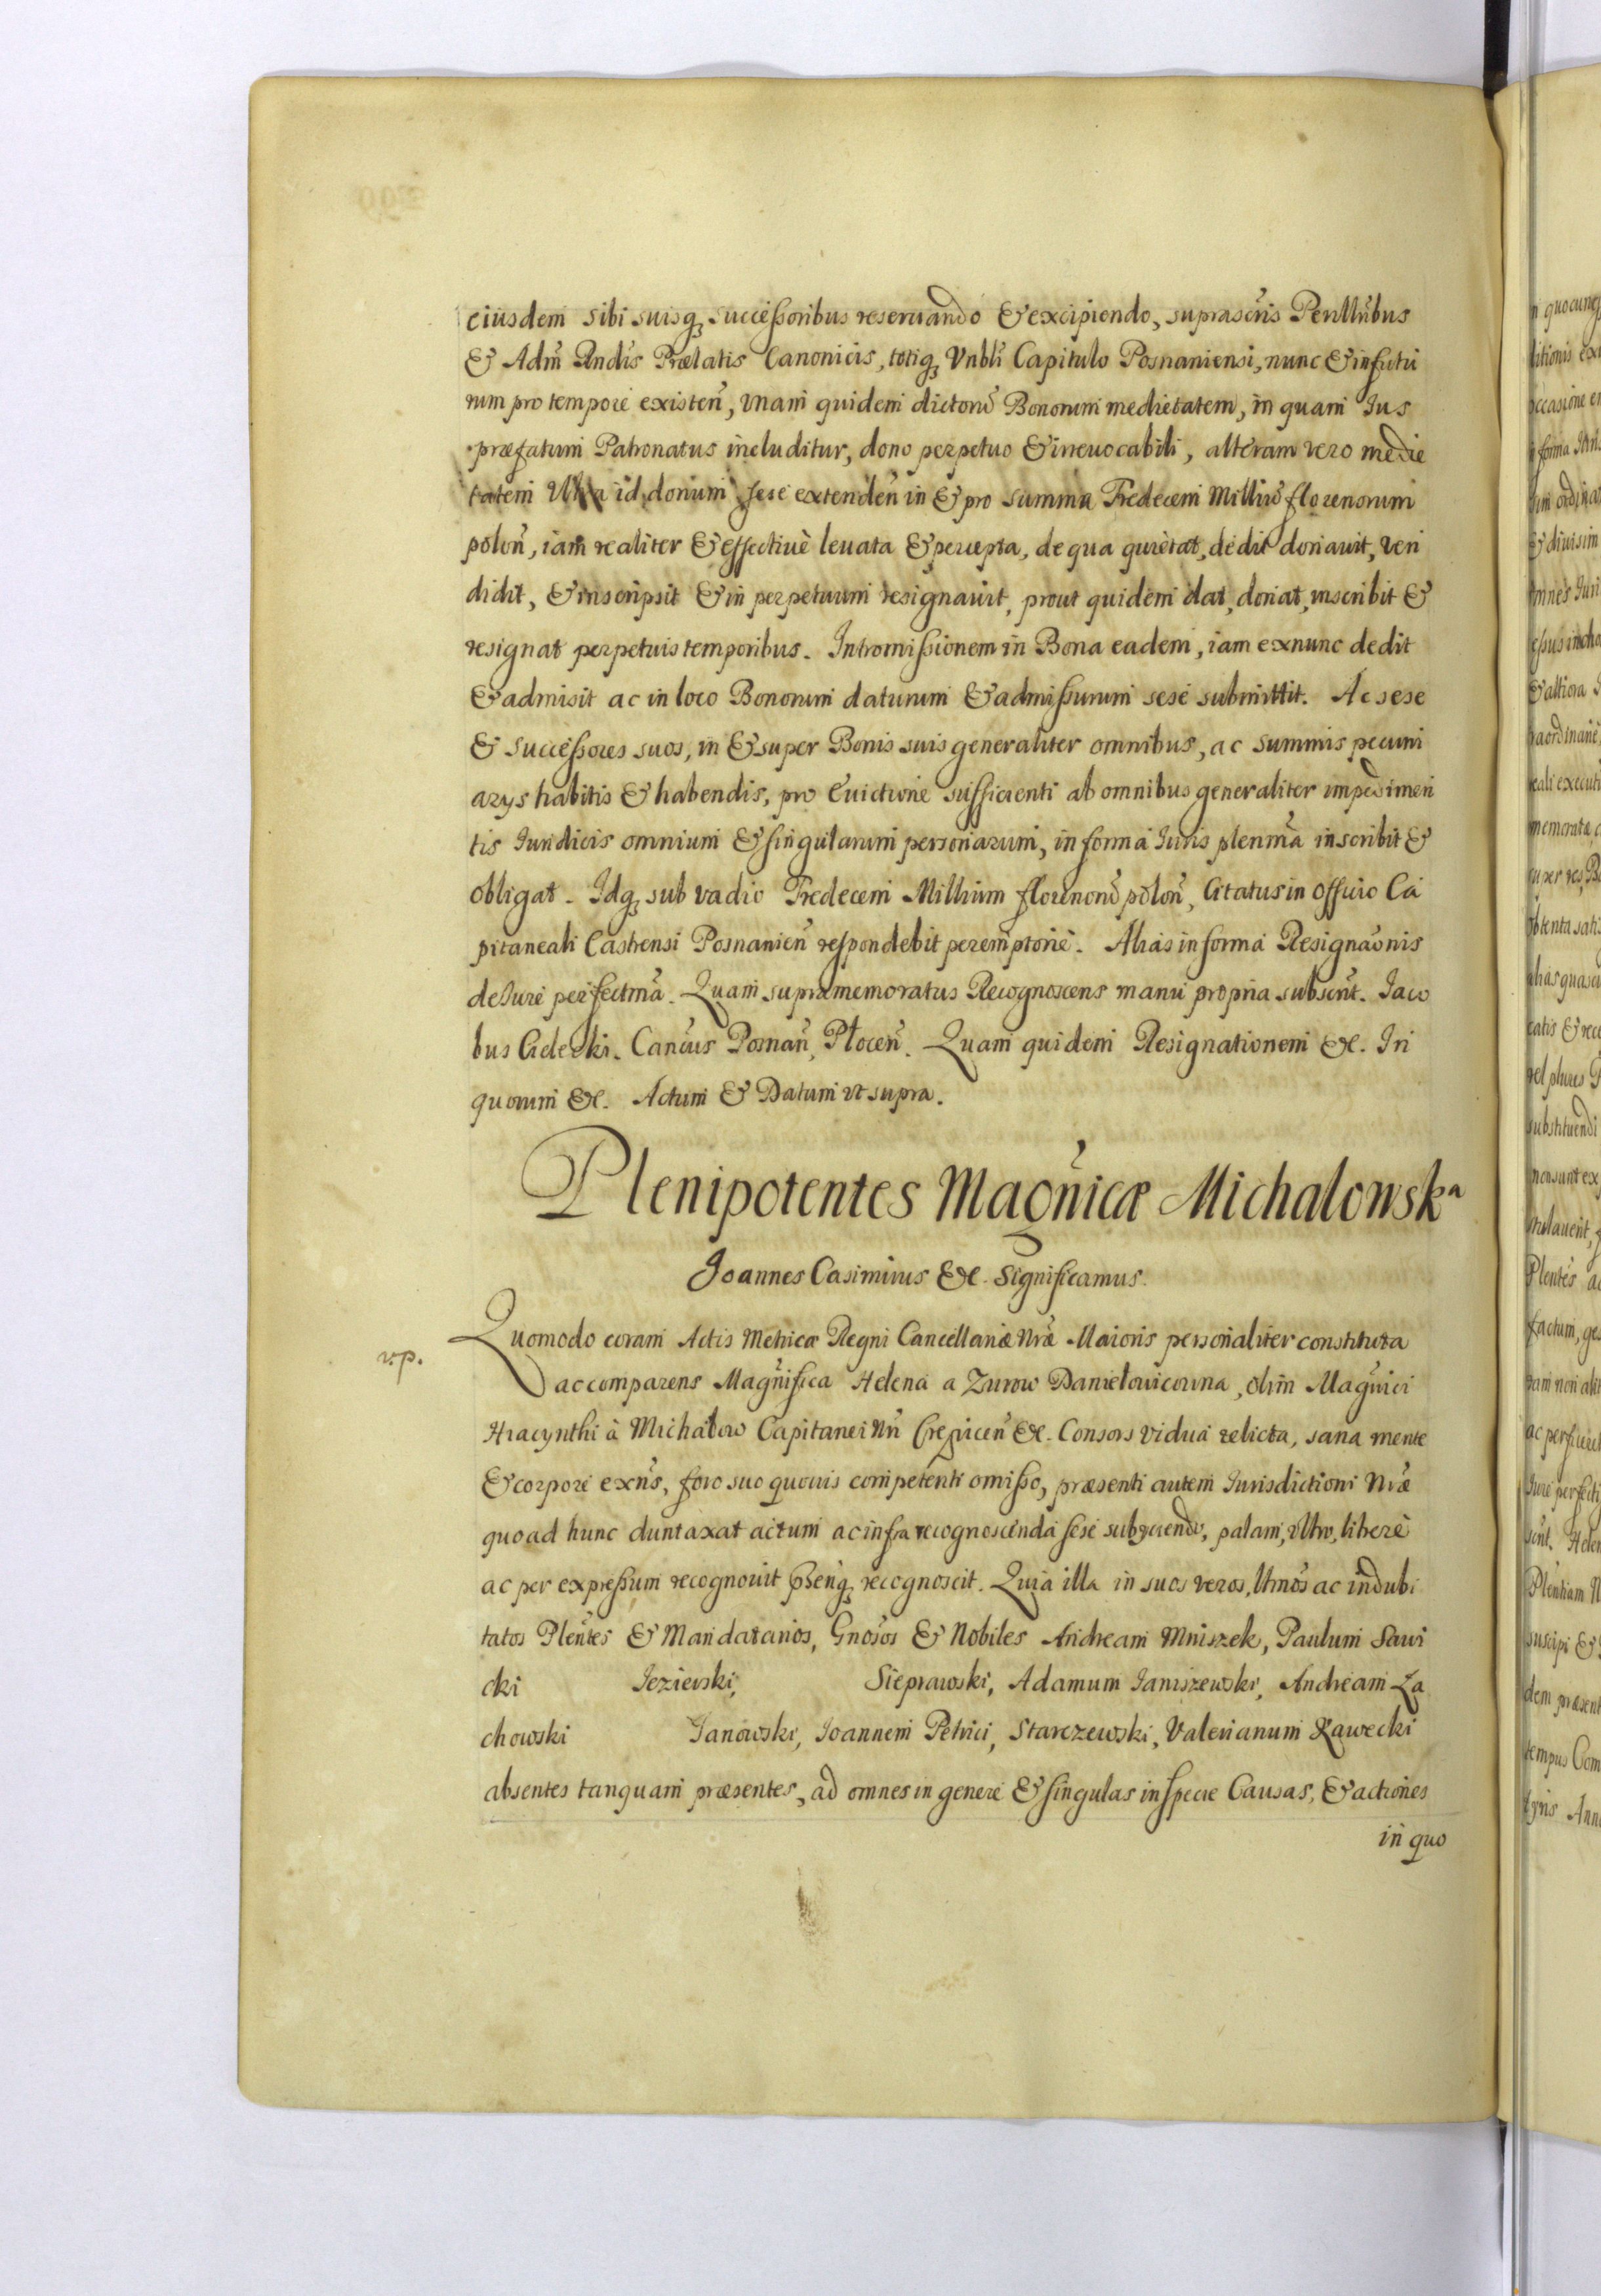 eiusdem sibi suisq₃ successoribus reseruando & excipiendo, suprascrĩs Perillribus
& Adm̃ Rndis Prælatis Canonicis, totiq₃ Vnbli Capitulo Posnaniensi, nunc & in futu
rum pro tempore existeñ, vnam quidem dictorũ Bonorum medietatem, in quam Ius
præfatum Patronatus includitur, dono perpetuo & irreuocabili, alteram vero medie
tatem Ultra id donum sese extendeñ in & pro summa Tredecem Milliũ florenorum
poloñ, iam realiter & effectiuè leuata & percepta, de qua quietat, dedit donauit, ven
didit, & inscripsit & in perpetuum resignauit, prout quidem dat, donat, inscribit &
resignat perpetuis temporibus. Intromissionem in Bona eadem, iam exnunc dedit
& admisit ac in loco Bonorum daturum & admissurum sese submittit. Ac sese
& successores suos, in & super Bonis suis generaliter omnibus, ac summis pecuni
arys habitis & habendis, pro Euictione sufficienti ab omnibus generaliter impedimen
tis Iuridicis omnium & singularum personarum, in forma Iuris plenrma inscribit &
obligat. Idq₃ sub vadio Tredecem Millium florenorũ poloñ, Citatus in officio Ca
pitaneali Castrensi Posnanieñ respondebit peremptoriè. Alias in forma Resignãonis
de Iure perfectma. Quam supramemoratus Recognoscens manu propria subscrit. Iaco
bus Gielecki. Cancus Posnañ, Ploceñ. Quam quidem Resignationem &c. In
quorum &c. Actum & Datum vt supra.
Plenipotentes Magñicæ Michalowska
Joannes Casimirus &c. Significamus.
v.p.
Quomodo coram Actis Metricæ Regni Cancellariæ Nræ Maioris personaliter constituta
ac comparens Magñifica Helena a Zurow Danielowicowna, olim Magñici
Hiacynthi à Michalow Capitanei Nri &c. Consors vidua relicta, sana mente
& corpore exñs, foro suo quouis competenti omisso, præsenti autem Iurisdictioni Nræ
quoad hunc duntaxat actum ac infra recognoscenda sese subyciendo, palam, vltro, liberè
ac per expressum recognouit Pñsenq₃ recognoscit. Quia illa in suos veros, ltmos ac indubi
tatos Plentes & Mandatarios, Gnosos & Nobiles Andream Mniszek, Paulum Sawi
cki Iezierski, Sieprawski, Adamum Ianiszewski, Andream La
chowski Ianowski, Joannem Petrici, Starczewski, Valerianum Kawecki
absentes tanquam præsentes, ad omnes in genere & singulas in specie Causas, & actiones
in quo